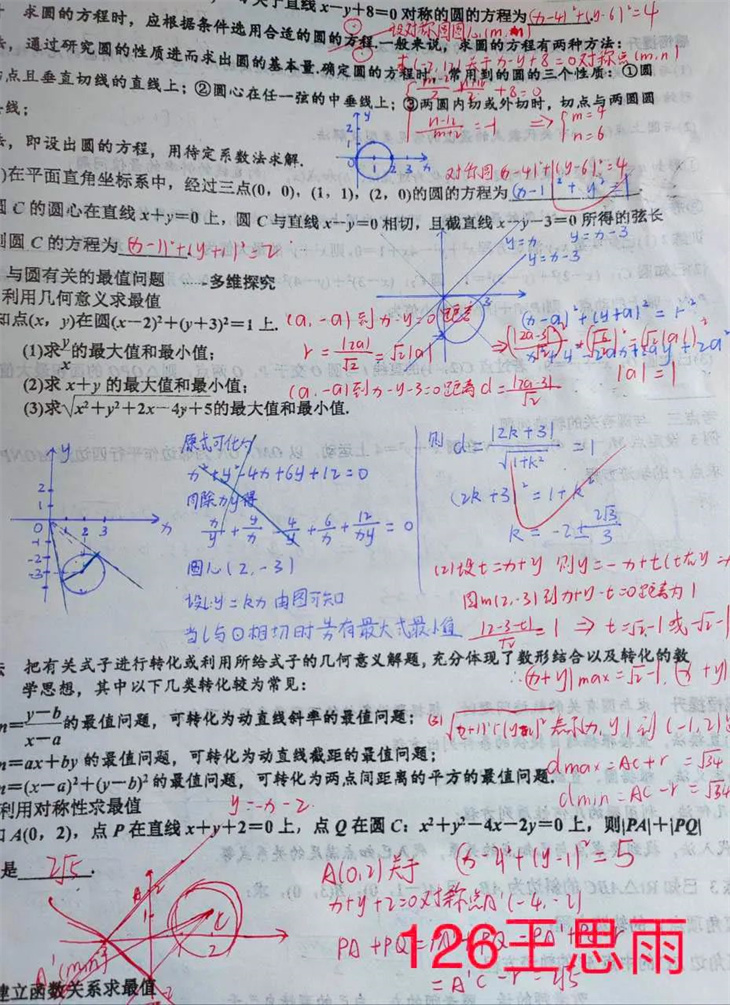 关于直线x-y+8=0对称的圆的方程为(x-4)²+(y-6)²=4
求圆的方程时,应根据条件选用合适的圆的方程.一般来说,求圆的方程有两种方法:
设对称圆圆心(m,n)
,通过研究圆的性质进而求出圆的基本量.确定圆的方程时,常用到的圆的三个性质:①圆
点且垂直切线的直线上;②圆心在任一弦的中垂线上;③两圆内切或外切时,切点与两圆圆
线;
+8=0
=-1 ⇒ m=4
n=6
,即设出圆的方程,用待定系数法求解.
对称圆(x-4)²+(y-6)²=4
)在平面直角坐标系中,经过三点(0,0),(1,1),(2,0)的圆的方程为(x-1)²+y²=1
圆C的圆心在直线x+y=0上,圆C与直线x-y=0相切,且截直线x-y-3=0所得的弦长
则圆C的方程为(x-1)²+(y+1)²=2
y=x
y=x-3
y=x-3
与圆有关的最值问题 -多维探究
利用几何意义求最值
知点(x,y)在圆(x-2)²+(y+3)²=1上.
(a,-a)到x-y=0距离
(x-a)²+(y+a)²=r²
(1)求y/x的最大值和最小值;
r=|2a|/√2=√2|a|
|a|=1
(2)求x+y的最大值和最小值;
(a,-a)到x-y-3=0距离d=|2a-3|/√2
(3)求√x²+y²+2x-4y+5的最大值和最小值.
原式可化为
x²+y²-4x+6y+12=0
同除xy得
x/y+y/x-4/y+6/x+12/xy=0
圆心(2,-3)
设l:y=kx由图可知
当l与⊙相切时有最大或最小值
则d=|2k+3|/√1+k²=1
(2k+3)²=1+k²
k=-2±2√3/3
(2)设t=x+y 则y=-x+t
圆m(2,-3)到x+y-t=0距离为1
|2-3-t|/√2=1 ⇒ t=√2-1或-√2-1
∴(x+y)max=√2-1,(x+y)
把有关式子进行转化或利用所给式子的几何意义解题,充分体现了数形结合以及转化的数
学思想,其中以下几类转化较为常见:
=y-b/x-a的最值问题,可转化为动直线斜率的最值问题;
(-1,2)
=ax+by的最值问题,可转化为动直线截距的最值问题;
dmax=AC+r=√34
=(x-a)²+(y-b)²的最值问题,可转化为两点间距离的平方的最值问题.
dmin=AC-r=√34
利用对称性求最值
y=-x-2
A(0,2),点P在直线x+y+2=0上,点Q在圆C:x²+y²-4x-2y=0上,则|PA|+|PQ|
是2√5.
A(0,2)关于
x+y+2=0对称点A'(-4,-2)
=A'C-r=2√5
126王思雨
建立函数关系求最值